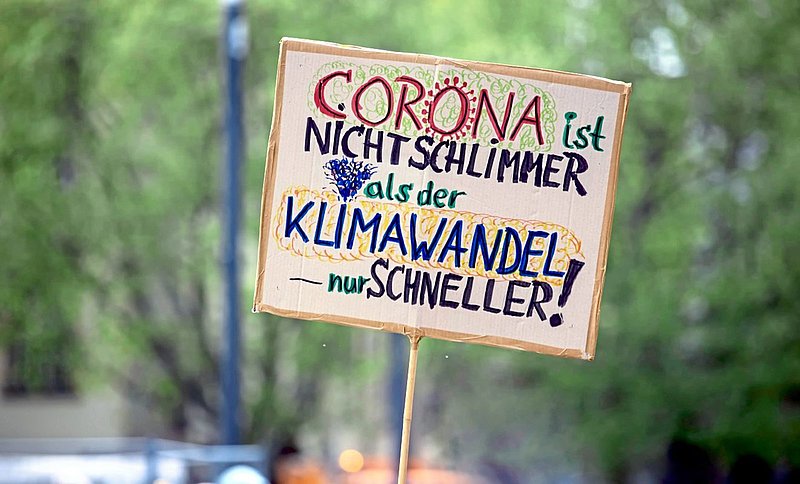 CORONA ist
NICHT SCHLIMMER
als der
KLIMAWANDEL
– nur SCHNELLER!